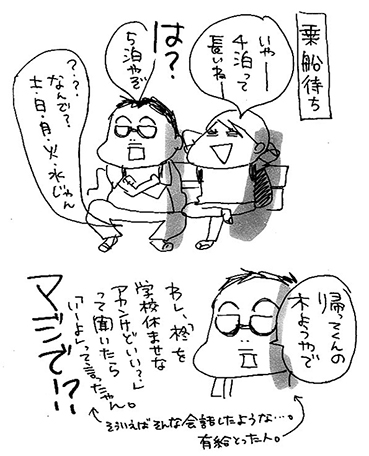 乗船待ち
いやー
4泊って
長いねー
は？
5泊やぞ
？？？
なんで？
土・日・月・火・水じゃん
帰ってくんの
木ようやで
オレ、「柊を
学校休ませな
アカンけどいい？」
って聞いたら
「いーよ」って言ったやん。
マジで！？
そういえばそんな会話したような…。
有給とった人。